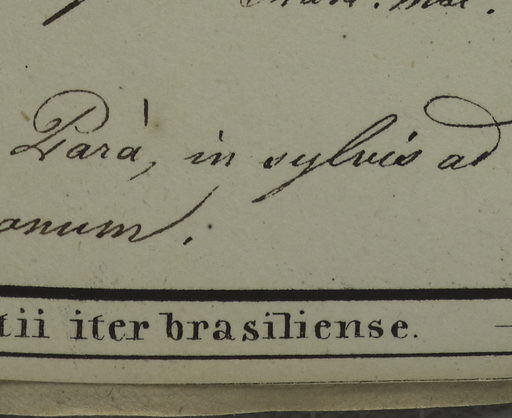 Pará, in sylvis ad
anum.
tii iter brasiliense.